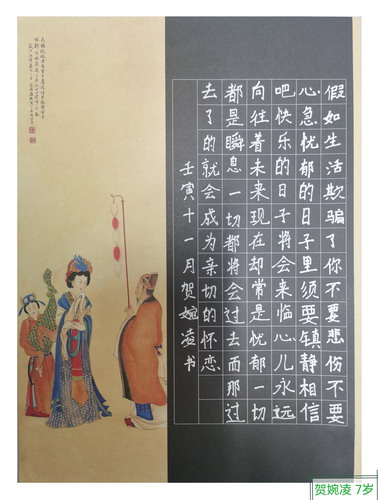 假如生活欺骗了你不要悲伤不要
心急忧郁的日子里须要镇静相信
吧快乐的日子将会来临心儿永远
向往着未来现在却常是忧郁一切
都是瞬息一切都将会过去而那过
去了的就会成为亲切的怀恋
壬寅十一月贺婉凌书
贺婉凌 7岁